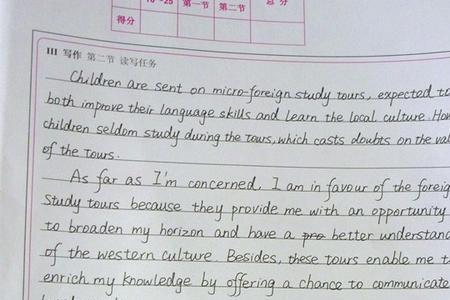 16~25 第一节 第二节 总分
得分
III 写作 第二节 读写任务
Children are sent on micro-foreign study tours, expected to
both improve their language skills and learn the local culture. How
children seldom study during the tours, which casts doubts on the val
of the tours.
As far as I'm concerned, I am in favour of the foreig
study tours because they provide me with an opportunity
to broaden my horizon and have a pro better understand
of the western culture. Besides, these tours enable me t
enrich my knowledge by offering a chance to communicate